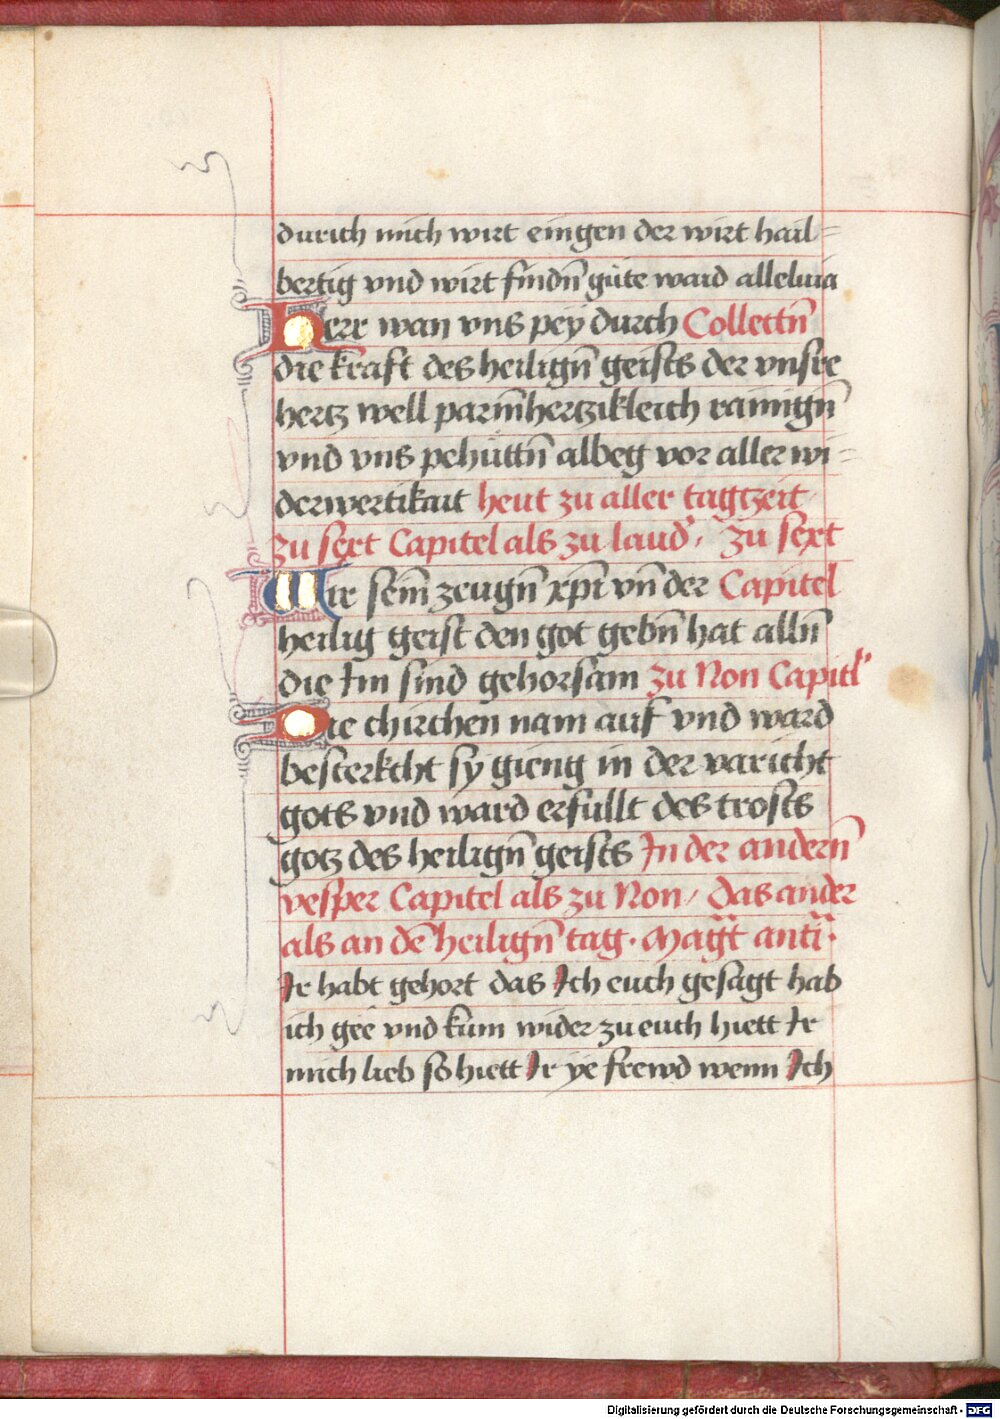 durich mich wirt eingen der wirt hail=
bertig vnd wirt findn̄ gůte waid alleluia
Herr wan vns pey durch Collectn̄
die kraft des heilign̄ geists der vnsre
hertz well parm̄hertzikleich rainign̄
vnd vns pehüttn̄ albeg vor aller wi=
derwertikait heut zu aller tagtzeit
zu sext Capitel als zu laud' / zu sext
Wir seīn zeugn̄ xp̄i vn̄ der Capitel
heilig geist den got gebn̄ hat alln̄
die Im sind gehorsam zu Non Capitl'
Die chirchen nam auf vnd ward
besterkcht sy gieng in der varicht
gots vnd ward erfüllt des trosts
gotz des heilign̄ geists In der andern̄
vesper Capitel als zu Non / das ander
als an dē heilign̄ tag · Mag̃t antiᷓ ·
Ir habt gehort das Ich euch gesagt hab
ich gee vnd kum wider zu euch hiett Ir
mich lieb so hiett Ir ye frewd wenn Ich
Digitalisierung gefördert durch die Deutsche Forschungsgemeinschaft - DFG